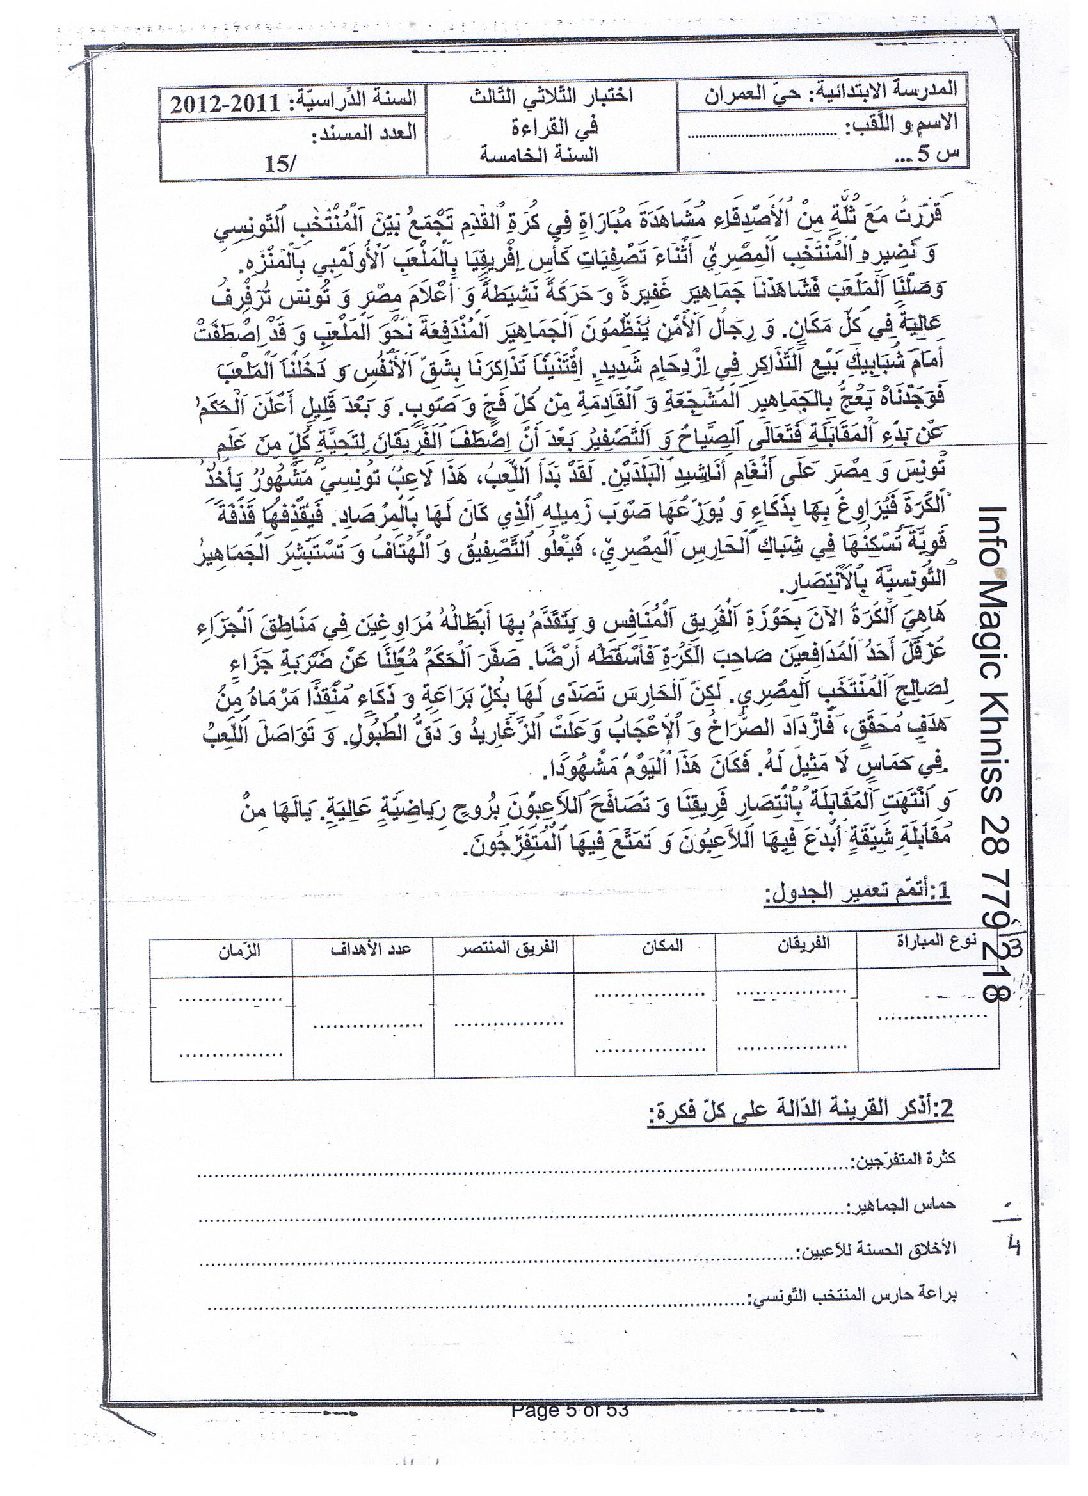 المدرسة الابتدائية: حيّ العمران
الاسم و اللّقب: ................................
س 5 ...
اختبار الثّلاثي الثّالث
في القراءة
السنة الخامسة
السنة الدّراسيّة: 2011-2012
العدد المسند:
/15
قَرَّرَتُ مَعَ ثُلَّةٍ مِنْ الْأَصْدِقَاءِ مُشَاهَدَةَ مُبَارَاةٍ فِي كُرَةِ الْقَدَمِ تَجْمَعُ بَيْنَ الْمُنْتَخَبِ التُّونِسِي
وَ نَضِيرِهِ الْمُنْتَخَبِ الْمِصْرِيِّ أَثْنَاءَ تَصْفِيَاتِ كَأْسِ إِفْرِيقِيَا بِالْمَلْعَبِ الْأُولَمْبِي بِالْمَنْزَهِ.
وَصَلْنَا الْمَلْعَبَ فَشَاهَدْنَا جَمَاهِيرَ غَفِيرَةً وَ حَرَكَةً نَشِيطَةً وَ أَعْلَامَ مِصْرَ وَ تُونِسَ تُرَفْرِفُ
عَالِيَةً فِي كُلِّ مَكَانٍ. وَ رِجَالُ الْأَمْنِ يُنَظِّمُونَ الْجَمَاهِيرَ الْمُنْدَفِعَةَ نَحْوَ الْمَلْعَبِ وَ قَدْ اِصْطَفَّتْ
أَمَامَ شُبَابِيكِ بَيْعِ التَّذَاكِرِ فِي اِزْدِحَامٍ شَدِيدٍ. اِقْتَنَيْنَا تَذَاكِرَنَا بِشَقِّ الْأَنْفُسِ وَ دَخَلْنَا الْمَلْعَبَ
فَوَجَدْنَاهُ يَعُجُّ بِالجَمَاهِيرِ الْمُشَجِّعَةِ وَ الْقَادِمَةِ مِنْ كُلِّ فَجٍّ وَ صَوْبٍ. وَ بَعْدَ قَلِيلٍ أَعْلَنَ الْحَكَمُ
عَنْ بَدْءِ الْمُقَابَلَةِ فَتَعَالَى الصِّيَاحُ وَ التَّصْفِيرُ بَعْدَ أَنْ اِصْطَفَّ الْفَرِيقَانِ لِتَحِيَّةِ كُلٍّ مِنْ عَلَمِ
تُونِسَ وَ مِصْرَ عَلَى أَنْغَامِ أَنَاشِيدِ الْبَلَدَيْنِ. لَقَدْ بَدَأَ اللَّعِبُ، هَذَا لَاعِبٌ تُونِسِيٌّ مَشْهُورٌ يَأْخُذُ
الْكُرَةَ فَيُرَاوِغُ بِهَا بِذَكَاءٍ وَ يُوَزِّعُهَا صَوْبَ زَمِيلِهِ الَّذِي كَانَ لَهَا بِالْمِرْصَادِ. فَيَقْذِفُهَا قَذْفَةً
قَوِيَّةً تُسْكِنُهَا فِي شِبَاكِ الْحَارِسِ الْمِصْرِيِّ، فَيَعْلُو التَّصْفِيقُ وَ الْهُتَافُ وَ تَسْتَبْشِرُ الْجَمَاهِيرُ
التُّونِسِيَّةُ بِالِانْتِصَارِ.
هَاهِيَ الْكُرَةُ الآنَ بِحَوْزَةِ الْفَرِيقِ الْمُنَافِسِ وَ يَتَقَدَّمُ بِهَا أَبْطَالُهُ مُرَاوِغِينَ فِي مَنَاطِقِ الْجَزَاءِ
عَرْقَلَ أَحَدُ الْمُدَافِعِينَ صَاحِبَ الْكُرَةِ فَأَسْقَطَهُ أَرْضًا. صَفَّرَ الْحَكَمُ مُعْلِنًا عَنْ ضَرْبَةِ جَزَاءٍ
لِصَالِحِ الْمُنْتَخَبِ الْمِصْرِي. لَكِنَّ الْحَارِسَ تَصَدَّى لَهَا بِكُلِّ بَرَاعَةٍ وَ ذَكَاءٍ مُنْقِذًا مَرْمَاهُ مِنْ
هَدَفٍ مُحَقَّقٍ، فَازْدَادَ الصُّرَاخُ وَ الْإِعْجَابُ وَ عَلَتْ الزَّغَارِيدُ وَ دَقُّ الطُّبُولِ. وَ تَوَاصَلَ اللَّعِبُ
فِي حَمَاسٍ لَا مَثِيلَ لَهُ. فَكَانَ هَذَا الْيَوْمُ مَشْهُودًا.
وَ انْتَهَتِ الْمُقَابَلَةُ بِانْتِصَارِ فَرِيقِنَا وَ تَصَافَحَ اللَّاعِبُونَ بِرُوحٍ رِيَاضِيَّةٍ عَالِيَةٍ. يَالَهَا مِنْ
مُقَابَلَةٍ شَيِّقَةٍ أَبْدَعَ فِيهَا اللَّاعِبُونَ وَ تَمَتَّعَ فِيهَا الْمُتَفَرِّجُونَ.
1:أتمّم تعمير الجدول:
نوع المباراة الفريقان المكان الفريق المنتصر عدد الأهداف الزّمان
3
2:أذكر القرينة الدّالة على كلّ فكرة:
كثرة المتفرّجين:................................
حماس الجماهير:................................
الأخلاق الحسنة للاّعبين:................................
4
براعة حارس المنتخب التّونسي:................................
Info Magic Khniss 28 779 218
Page 5 of 53